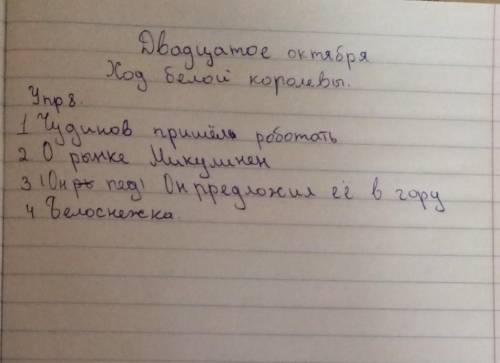 Двадцатое октября
Ход белой королевы.
Упр 8.
1 Чудинов пришёл роботать
2 О рынке Микулинен
3 Он пед Он предложил её в гору
4 Белоснежка